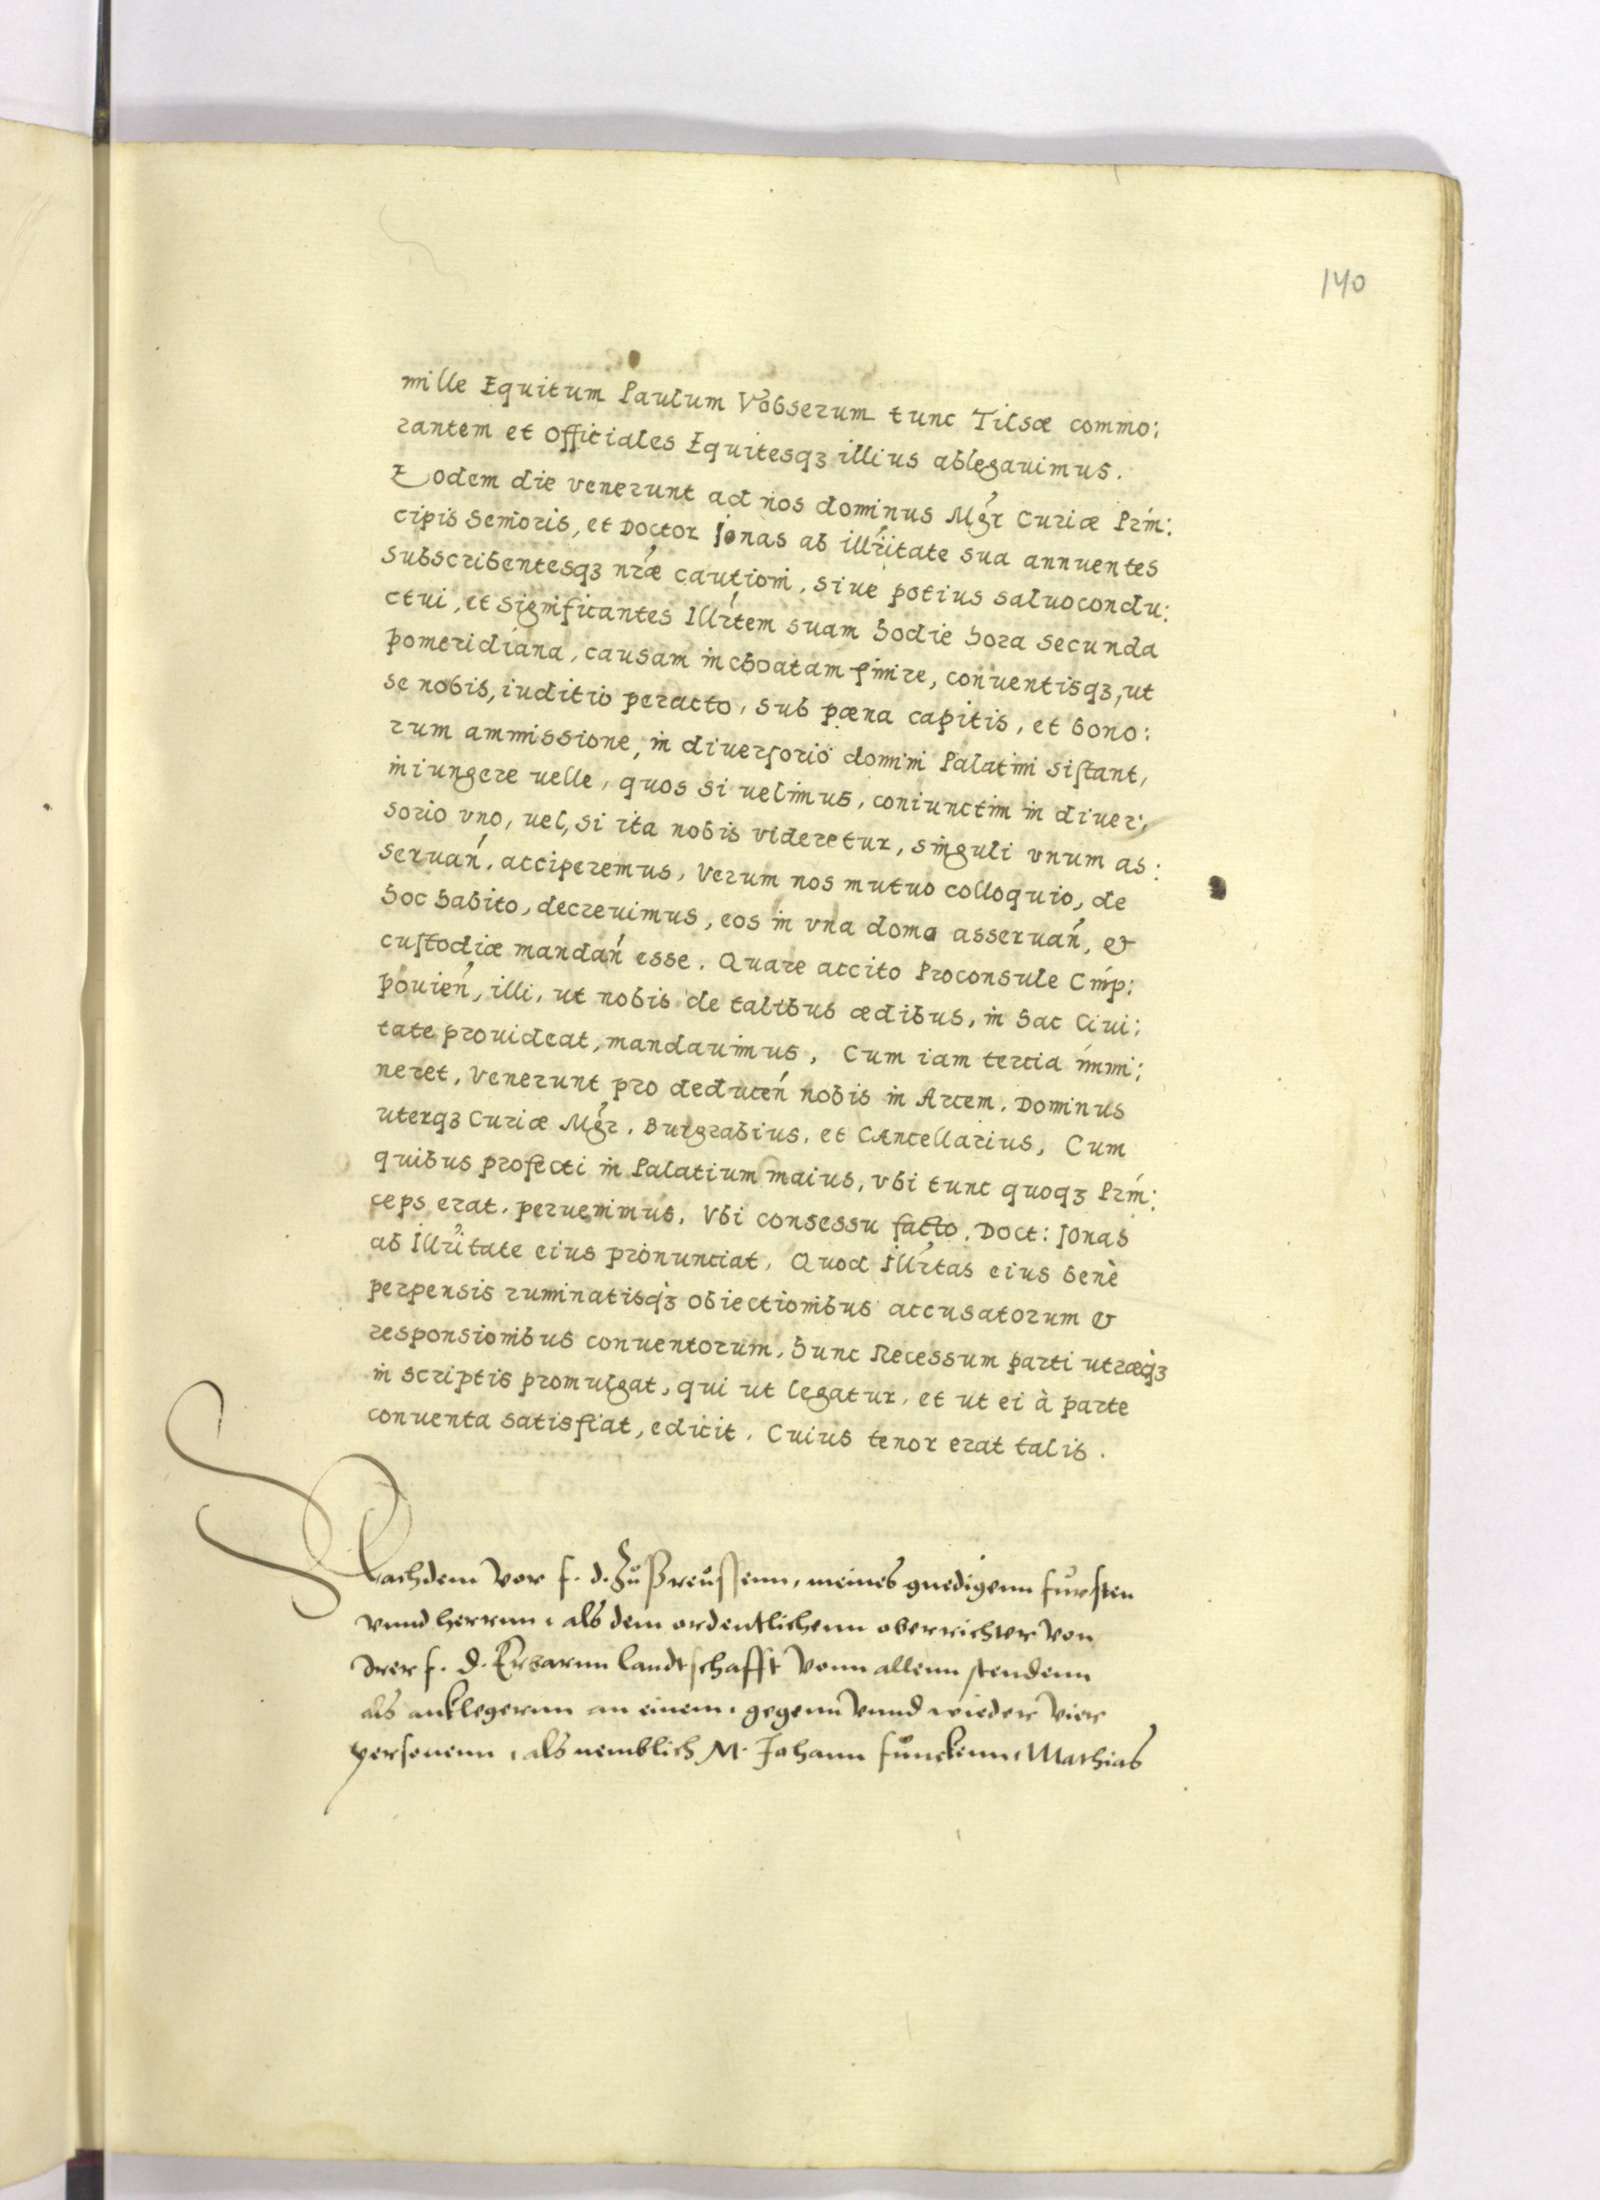 140
mille Equitum Paulum Vobserum tunc Tilsæ commo:
rantem et Officiales Equitesqʒ illius ablegauimus.
Eodem die venerunt ad nos dominus Mgr̃ Curiæ Prin:
cipis Senioris, et Doctor Jonas ab illr̃itate sua annuentes
Subscribentesqʒ nr̃æ cautioni, siue potius saluocondu:
ctui, et significantes Illr̃tem suam hodie hora secunda
pomeridiana, causam inchoatam finire, conuentisqʒ, ut
se nobis, iuditio peracto, sub pæna capitis, et bono:
rum ammissione, in diuersorio domini Palatini sistant,
iniungere uelle, quos si uelimus, coniunctim in diuer:
sorio vno, uel, si ita nobis videretur, singuli vnum as:
seruań, acciperemus, Verum nos mutuo colloquio, de
hoc habito, decreuimus, eos in vna domo asseruań, &
custodiæ mandań esse. Quare accito Proconsule Cnip:
houień, illi, ut nobis de talibus ædibus, in hac Ciui:
tate prouideat, mandauimus, Cum iam tertia immi:
neret, Venerunt pro deducen nobis in Arcem. Dominus
uterqʒ Curiæ Mgr̃. Burgrabius, et Cancellarius, Cum
quibus profecti in Palatium maius, vbi tunc quoqʒ Prin:
ceps erat, peruenimus. Vbi consessu facto, Doct: Jonas
ab Illr̃itate eius pronunciat, Quod Illr̃tas eius benè
perpensis ruminatisqʒ obiectionibus accusatorum &
responsionibus conuentorum, hunc Recessum parti utræqʒ
in scriptis promulgat, qui ut legatur, et ut ei à parte
conuenta satisfiat, edicit. Cuius tenor erat talis.
Nachdem vor f. d. Zu Preussenn, meines gnedigenn fursten
vnnd herrnn, als dem ordentlichenn oberrichter von
Irer f. d. Erbarnn landtschafft vonn allenn stendenn
als anklegernn an einem, gegenn vnnd wieder vier
personenn, als nemblich M. Johann funckenn, Mathias